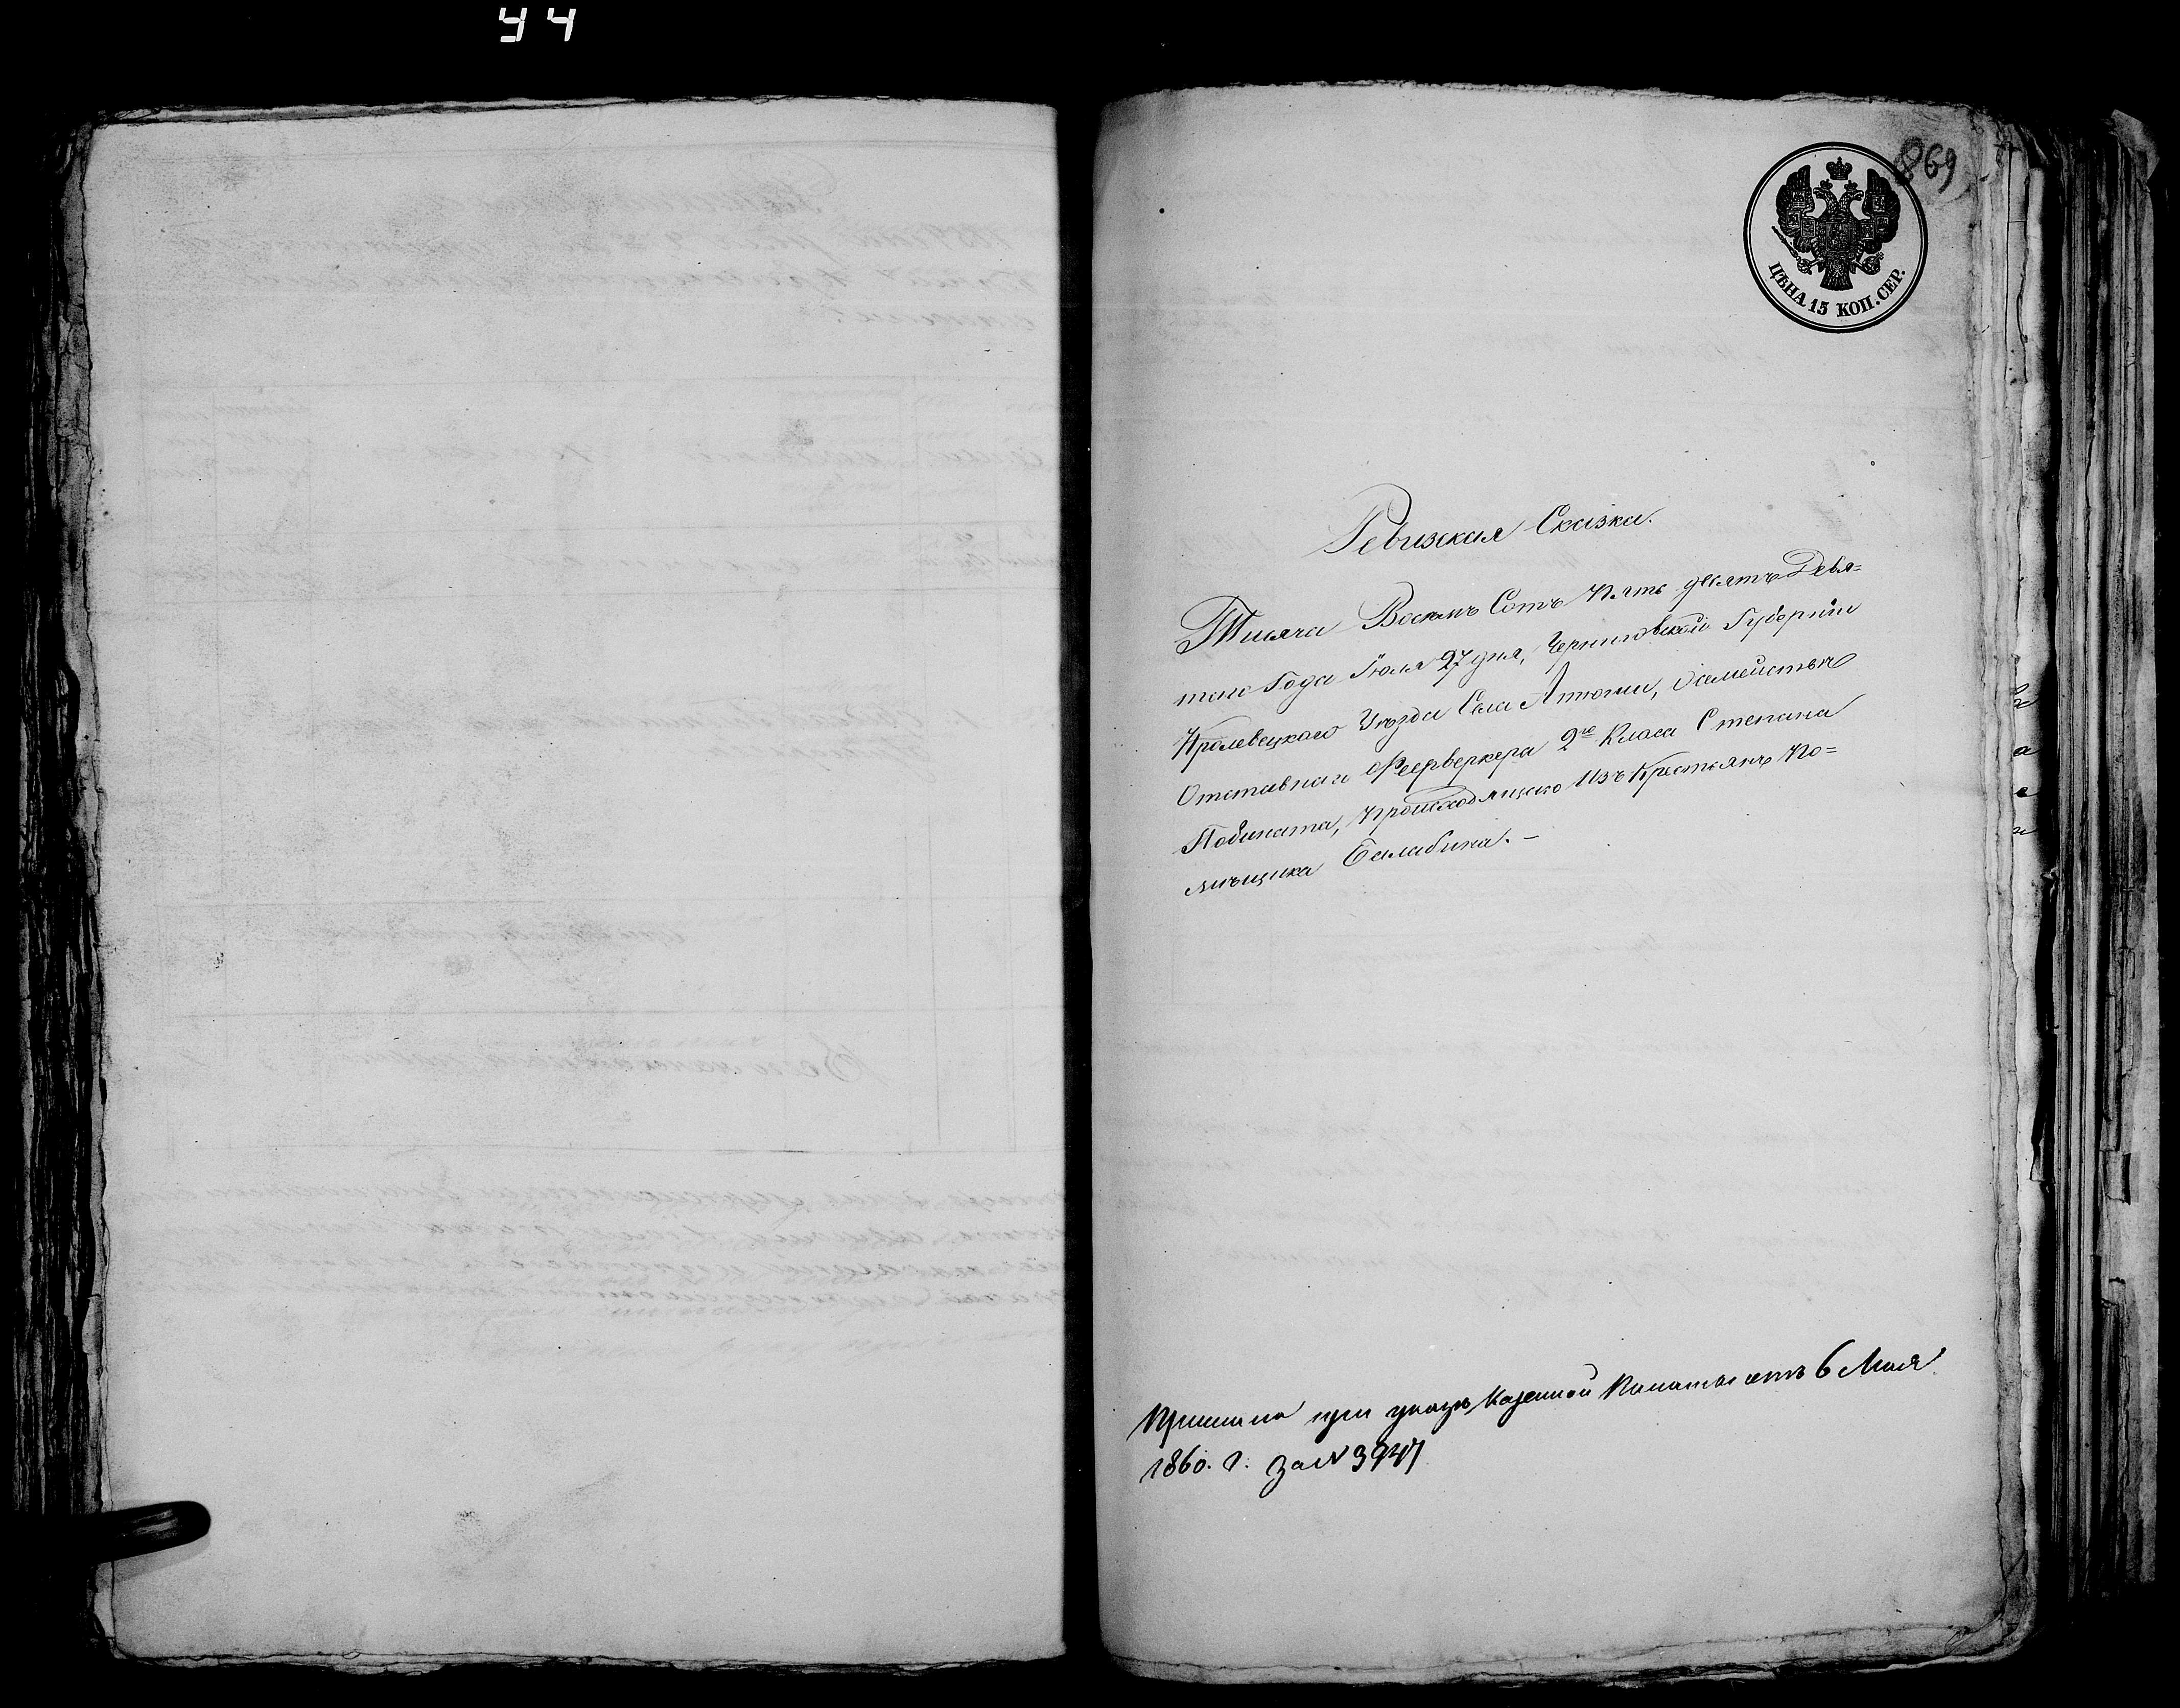 44
869
ЦѢНА 15 КОП. СЕР.
Ревизкая Сказка.
Тисяча Восемь Сотъ Пять десятъ Девя=
таго Года Іюля 27 дня, Черниговской Губерніи
Кролевецкого Уѣзда Села Алтюни, О семействѣ
Отставнаго Феерверкера 2го Класа Степана
Прошходящего Изъ Крестьянъ По=
мѣщика Балабина. –
при указѣ Казенной Палаты отъ 6 Мая
1860. г. за №